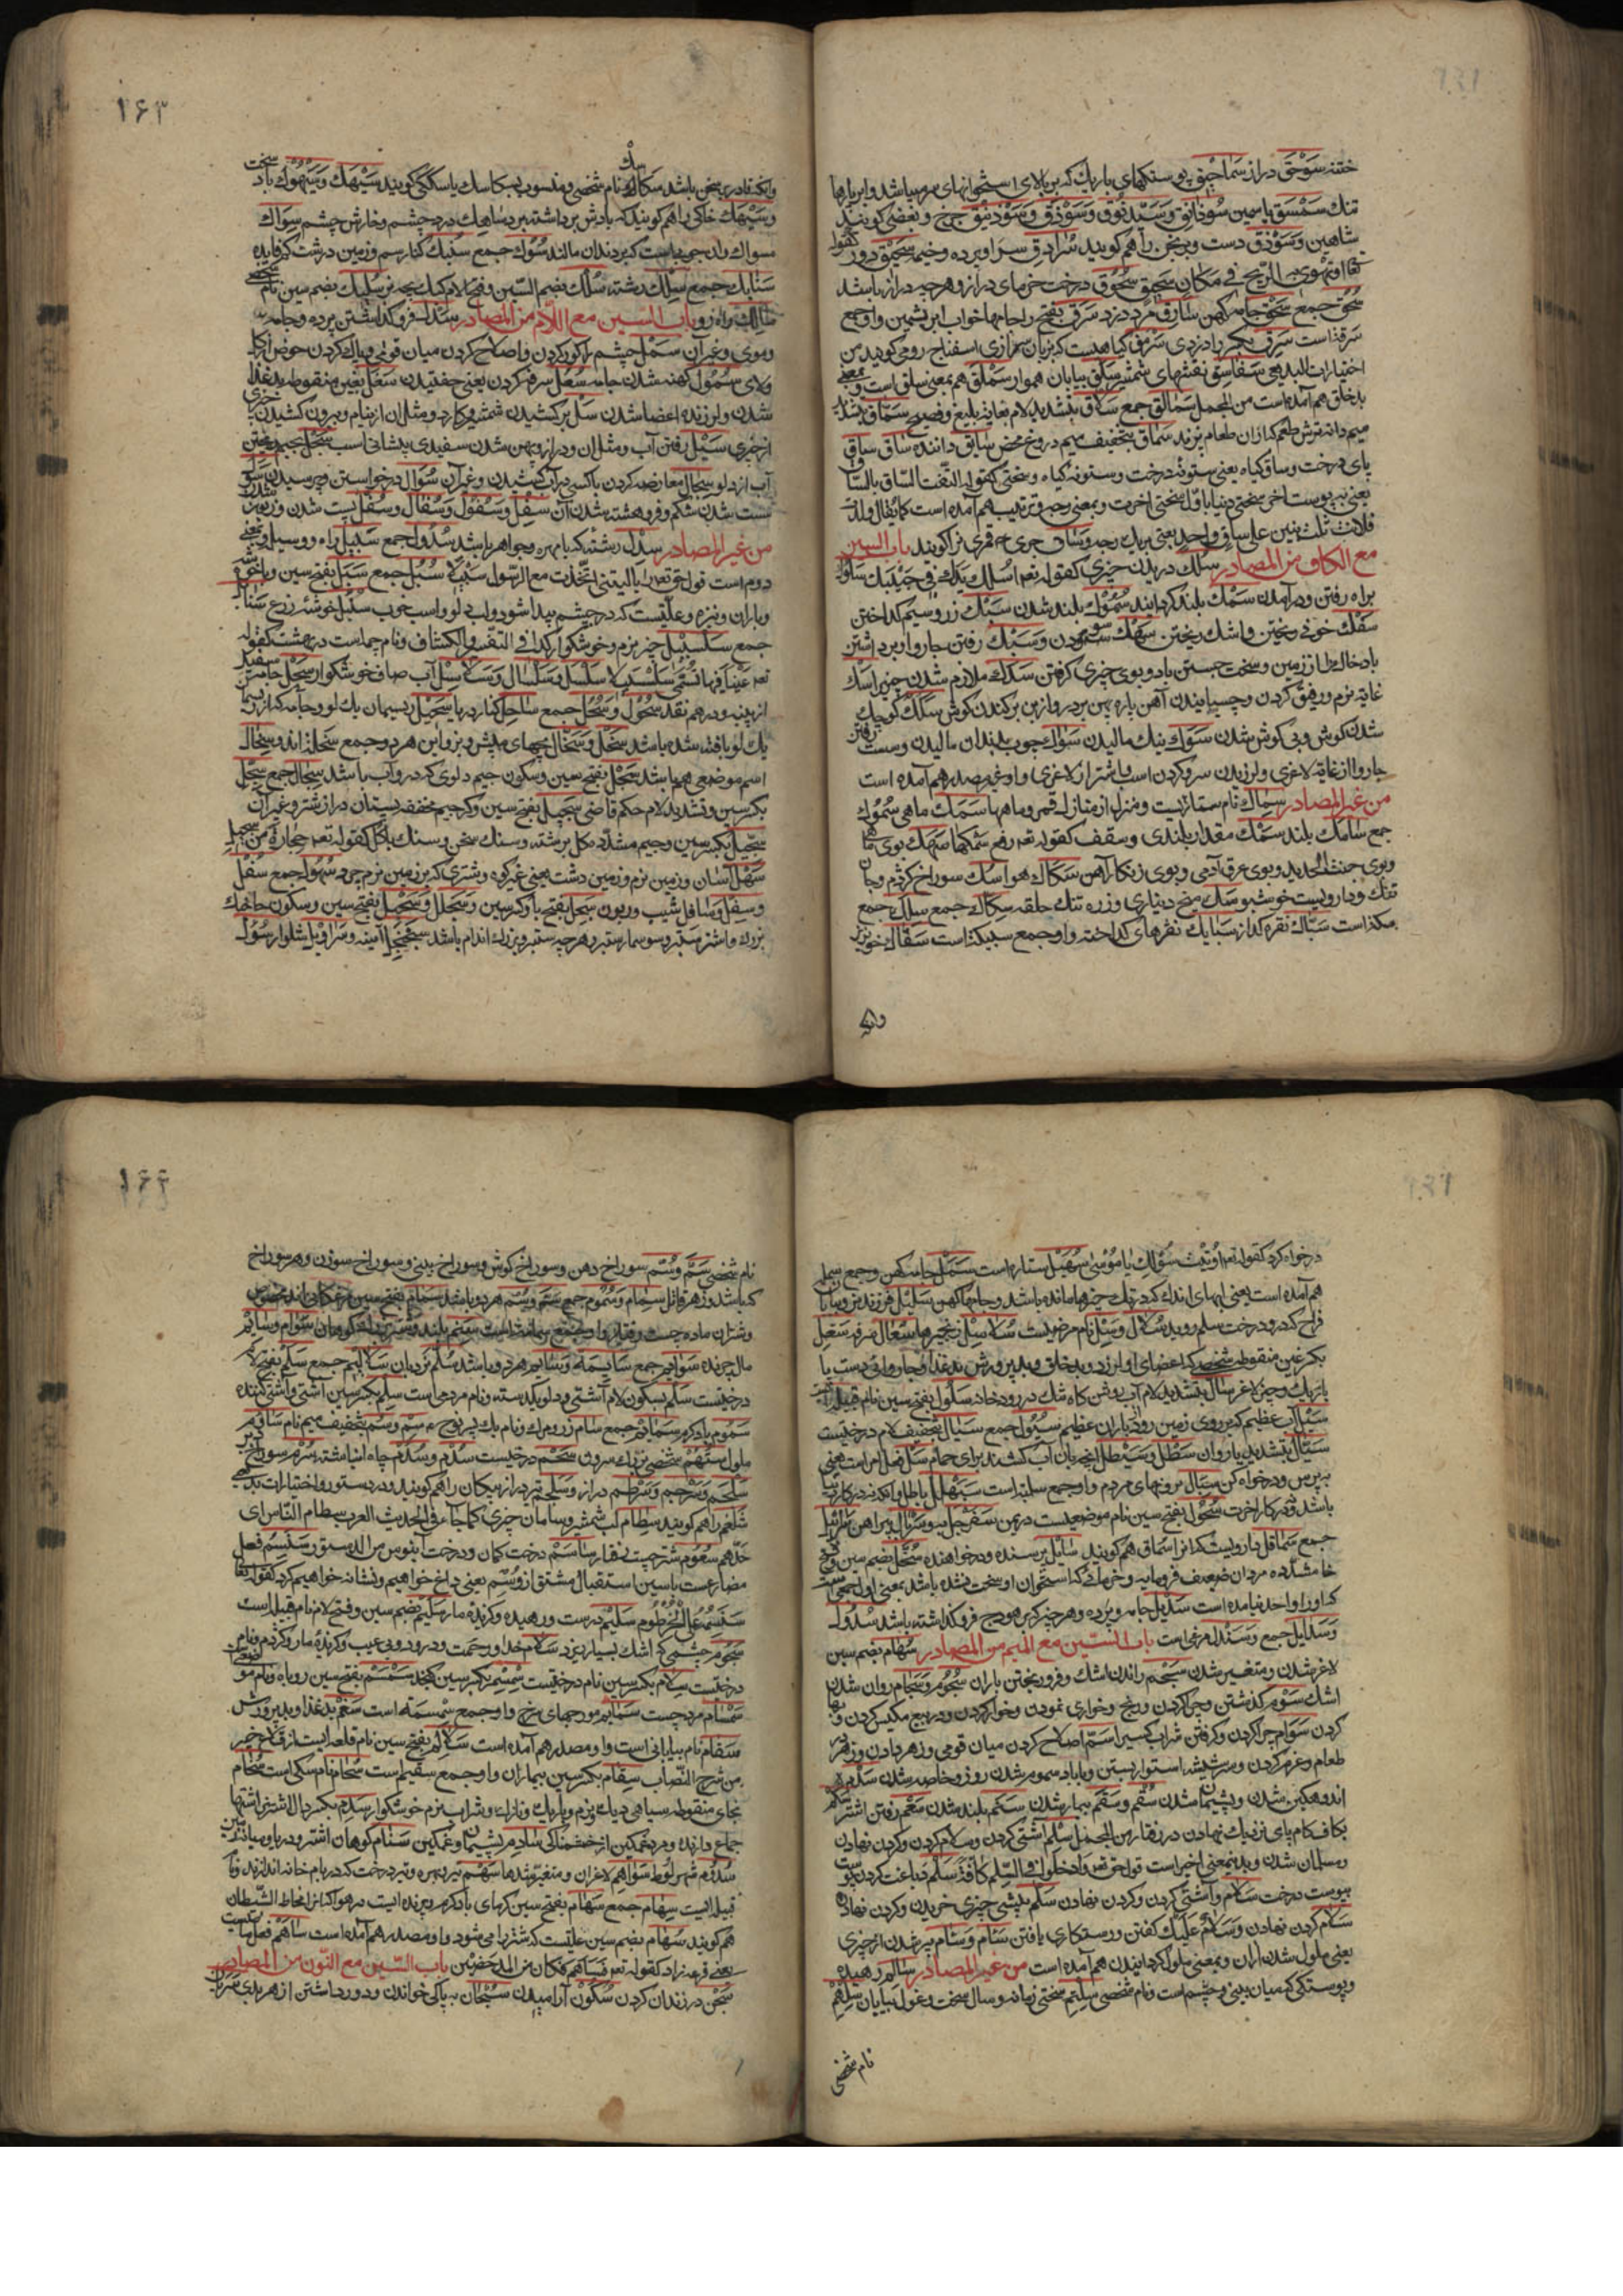 ختنه سَوْحَق دراز سَمَاحِیق پوستکهای باریک که بر بالای استخوانهای سر میباشد و ابر پارها
تنک سَمْسَق یاسمین سُوذانِق وَسَیْذَنُوق وَسَوْذَق وَسَوْذَنِیق چرخ و بعضی کویند
شاهین وَسَوْذَق دست و برنجن را هم کویند سُرادِق سراپرده و خیمه سَحِیق دور کقوله
تعا اوتَهْوی به الرّیح فی مکان سَحِیق سَحُوق درخت خرمای دراز و هرچه دراز باشد
سُحُق جمع سَحْق جامه کهن سارِق مرد دزد سَرَق بفتح را جامها خواب ابریشمین واو جمع
سَرَقه است سَرِق بکسر را دزدی سَرْمَق کیاهیست که بزبان شیرازی اسفناج رومی کویند من
اختیارات البدیعی سَفاسِق نقشهای شمشیر سَمْلَق بیابان هموار سَمْلَق هم بمعنی سلق است و بمعنی
بدخلق هم آمده است من المجمل سَمالِق جمع سَلاّق بتشدید لام بغایة بلیغ و فصیح سُمّاق بتشدید
میم دانه ترش طعم که از ان طعام پزند سُماق بتخفیف میم دروغ محض سایق داننده ساق ساق
پای درخت و ساق کیاه یعنی ستونه درخت و ستونه کیاه و سختی کقوله التفّت السّاق بالسّاق
یعنی به پیوست اخر سختی دنیا باوّل سختی اخرت و بمعنی وجه و ترتیب هم آمده است کما یُقال ولدت
فلانة ثلث بنین علی ساق واحد یعنی بر یک وجه وساق حر خه قمری نر اکویند باب السین
مع الکاف من المصادر سَلْک در بدن چیزی کقوله تعه اسْلُک یَدَک فی جَیْبِک سَلوک
براه رفتن و درآمدن سَمْک بلند کردانیدن سُمُوک بلند شدن سَبْک زر و سیم کداختن
سَفْک خون ریختن و اشک ریختن سَهْک سودن وسَهْک رفتن چاروا و برداشتن
باد خاک را از زمین و سخت جستن باد و بوی چیزی کرفتن سَدَک ملازم شدن چیزی را سَک
غایة نرم و رفیق کردن و چسپانیدن آهن پاره پهن بر در و از بن برکندن کوش سَکَک کوچک
شدن کوش و بی کوش شدن سَوْک نیک مالیدن سَواک چوب بدندان مالیدن و سست رفتن
چاروا از غایة لاغری و لرزیدن سر و کردن اسپ و اشتر از لاغری و او غیر مصدر هم آمده است
من غیر المصادر سِماک نام ستارایست و منزلی از منازل قمر و ماهها سَمَک ماهی سُمُوک
جمع سامِک بلند سَمْک مقدار بلندی و سقف کقوله تعه رفع سَمْکها سَهَک بوی ماهی
و بوی خبث الحدید و بوی عرق آدمی و بوی زنکار آهن سَکاک هوا سُک سوراخ کژدم و چاه
تنک و دارویست خوشبو سَک میخ دیناری و زره تنک حلقه سِکاک جمع سِلَک جمع
سکه است سَبّاک نقره کداز سَبایک نقرهای کداخته واو جمع سَبیکه است سَفّاک خونریز
وانکه
۱۶۳
وانکه قادر بسخن باشد سکّاکی نام شخصی و منسوب به سکّاک یا سکّاکی کویند سَیْهَک وَسَیْهُوک باد سخت
وسَیْهَک خاکی را هم کویند که بادش برداشته برد ساهِک درد چشم و خارش چشم سِواک
مسواک و ان چوبیاست که بر دندان مالند سُوُک جمع سُنْبُک کنار سم و زمین درشت کم فایده
سَنابِک جمع سِلْک رشته سُلَک بضم السّین و فتح لام کبک بچه نر سُلَیک بضم سین نام شخصی
سالِک راه رو باب السّین مع اللّام من المصادر سَدْل فرو کذاشتن پرده و جامه
و موی و غیر آن سَمْل چشم را کور کردن و اصلاح کردن میان قومی و پاک کردن حوض از کل
ولای سُمُول کهنه شدن جامه سُعال سرفه کردن یعنی خفتیدن سَغَل بغین منقوطه بد غذا
شدن و لرزنده اعضا شدن سَلّ برکشیدن شمشیر و کارد و مثل ان از نیام و بیرون کشیدن چیزی
از چیزی سَیْل رفتن آب و مثل ان و دراز و پهن شدن سفیدی پیشانی اسب سَجْل بجیم ریختن
آب از دلو سِجال معارضه کردن با کسی در آب کشیدن و غیر آن سُؤال درخواستن و پرسیدن سَوَل
سست شدن شکم و فروهشته شدن آن سِفْل وَسُفُول وَسَفال وَسُفْل پست شدن و زبون شدن
من غیر المصادر سِدْل رشته که با مهره و جواهر باشد سُدُول جمع سَبِیل راه و وسیله و بمعنی
دوم است قول حق تعه یا لیتنی اتّخذت مع الرّسول سبیلا سُبُل جمع سَبَل بفتح سین و با خوشه
و باران و نیزه و علّتیست که در چشم پیدا شود و لب دلو و اسب خوب سُنْبُل خوشه زرع سَنابِل
جمع سَلْسَبِیل چیز نرم و خوشکوار کذا فی التفسیر الکشاف و نام چشمه است در بهشت کقوله
تعه عَیناً فیها تُسَمّی سَلْسَبِیلا سَلْسَل وَسَلْسال وَسَلاسِل آب صاف خوشکوار سَحْل جامه سفید
از پنبه و درهم نقد سُحُول وَسُحُل جمع ساحِل کنار دریا سَحِیل ریسمان یک لو و جامه که از ریسمان
یک لو بافته شده باشد سَخْل وَسِخال بچهای میش و بز و این هر دو جمع سَخْلَه اند و سِخال
اسم موضعی هم باشد سَجْل بفتح سین و سکون جیم دلوی که در و آب باشد سِجال جمع سِجِلّ
بکسر سین و تشدید لام حکم قاضی سَجِیل بفتح سین و کسر جیم مخففه پستان دراز شتر و غیر آن
سِجِّیل بکسر سین و جیم مشدّد کل برشته و سنک سخن و سنک با کل کقوله تعه حِجارَةً من سِجّیل
سَهْل آسان و زمین نرم و زمین دشت یعنی غیر کوه و شتری که بر زمین نرم چرد سُهُول جمع سُفْل
وسِفْل وسافل شیب و زبون سِجِلّ بفتح با و کسر سین وَسَجْلَل وَسَحْبَل بفتح سین و سکون حا خیک
بزرک و اشتر ستبر و سوسمار ستبر و هر چیه ستبر و بزرک اندام باشد سَجَنْجَل آیینه و سَراوِیل شلوار سُؤْل
درخواه کرد کقوله تعه اُوتِیتَ سُؤْلَک یا مُوسَی سُهَیْل ستاره است سَمَل جامه کهن و جمع سمله
هم آمده است یعنی ابهای اندک که در تک حوضها مانده باشد و جامهٔ کهن سَلِیل فرزند نر و بیابان
فراخ که درو درخت سلم روید سُلال وَسِلّ نام مرضیست سَلاسِل زنجیرها سُعال سرفه سَغِل
بکسر عین منقوطه شخصی که اعضای او لرزد و بد خلق و بد پرورش بد غذا و چاروائی دست پا
باریک و چیز لاغر سَلّال بتشدید لام آب روشن کاه تنک در رودخانه سَلُول بفتح سین نام قبیله ایست
سَیْل آب عظیم که بر روی زمین رود از باران عظیم سُیُول جمع سَیال بتخفیف لام درختیست
سَیّال بتشدید یا روان سَطْل وَسَیْطَل انچه بان آب کشند برای حمام سَلْ فعل امر است یعنی
بپرس و درخواه کن سِبال بروتهای مردم واو جمع سبلة است سَبَهْلَل باطل و انکه نه در کار دنیا
باشد و نه در کار اخرت سَحُول بفتح سین نام موضعیست در یمن سَفَرْجَل به سِرْبال پیراهن سَرابِیل
جمع سُماقِیل دارویست که انرا سماق هم کویند سایل پرسنده و درخواهنده سُخَّل بضم سین و فتح
خا مشدّده مردان ضعیف فرومایه و خرمایی که استخوان او سخت نشده باشد بمعنی اول جمعی است
که او را واحد نیامده است سَدِیل جامه و پرده و هر چیز که بر هودج فرو کذاشته باشد سُدُول
وَسَدایِل جمع وَسَنْدَل مرغی است باب السّین مع المیم من المصادر سُهام بضم سین
لاغر شدن و متغیر شدن سَجْم راندن اشک و فرو ریختن باران سُجُوم وَسِجام روان شدن
اشک سَوْم کذشتن و چرا کردن و رنج و خواری نمودن و خوار کردن و در بیع مکیس کردن و بها
کردن سَوام چرا کردن و کرفتن شراب کسی را سَمّ اصلاح کردن میان قومی و زهر دادن و زهر در
طعام و غیره کردن و سر شیشه استوار بستن و با باد سموم شدن روز و خاصه شدن سَدَم
اندوهکین شدن و پشیمان شدن سُقْم وَسَقَم بیمار شدن سَنَم بلند شدن سَعْم رفتن اشتر سَکْم
بکاف کام پای نزدیک نهادن در رفتار من المجمل سَلْم آشتی کردن و سلام کردن و کردن نهادن
و مسلمان شدن و بدین معنی اخیر است قول حق تعه ادخلوا فی السِّلم کافّة سَلْم دباغت کردن پوست
بپوست درخت سَلام واشتی کردن و کردن نهادن سَلَم پیشی چیزی خریدن و کردن نهادن
سَلام کردن نهادن وَسَلامٌ عَلَیْک کفتن و رستکاری یافتن سَئام وَسَئام سیر شدن از چیزی
یعنی ملول شدن از ان و بمعنی ملول کردانیدن هم آمده است من غیر المصادر سالِم رهیده
و پوستکی که میان بینی و چشم است و نام شخصی سِلْتِم سختی زمانه و سال سخت و غول بیابان سَلِیم
نام شخصی
۱۶۴
نام شخصی سَمّ وَسُمّ سوراخ دهن و سوراخ کوش و سوراخ بینی و سوراخ سوزن و هر سوراخ
که باشد و زهر قاتل سِمام وَسُمُوم جمع سَمّ وَسُمّ هر دو باشد سَمام بفتح سین مرغکانی اند مخصوص
و شتران ماده چست رفتار واو جمع سمامة است سَنَم بلند و شتر بلند کوهان سَوام وَسایم
مال چرنده سَوایِم جمع سایِمَة وَسایِم هر دو باشد سُلَّم نردبان سَلالِیم جمع سَلَم بفتح لام
درختیست سَلْم بسکون لام آشتی و دلو یکدسته و نام مرد ماست سِلْم بکسر سین آشتی و آشتی کننده
سَمُوم باد کرم سَمائِم جمع سام زر و مرک و نام یک پسر نوح عه سِمْ وسُمْ بتخفیف میم نام سَئِم
ملول سَتَهُم شخصی بزرک سرون سَحَم درختیست سُدُم وَسُدْم چاه انباشته سُرْم سوراخ دبر
سَلْجَم وَسَرْجَم وَسَرْطَم دراز وَسَلْجَم تیر دراز پیکان را هم کویند و در دستور و اختیارات بمعنی
شلغم را هم کویند سِطام لب شمشیر و سامان چیزی کما جاء فی الحدیث العرب سِطام النّاس ای
حدّهم سَعُوم شتر چست رفتار ساسَم درخت کمان و درخت آبنوس من الدستور سَنَسِمُ فعل
مضارعست با سین استقبال مشتق از وَسْم یعنی داغ خواهیم و نشانه خواهیم کرد کقوله تعا
سَنَسِمُهُ عَلَی الخُرْطُوم سَلِیم درست و رهیده و کزیده مار سُلَیم بضم سین و فتح لام نام قبیله است
سَجُوم چشمی که اشک بسیار ریزد سَلام خدا و رحمت و درود و بی عیب و کزیدهٔ مار و کژدم و نام
درختیست سِلام بکسر سین نام درختیست سِمْسِم بکسر سین کنجد سَمْسَم بفتح سین روباه و نام مو
سَمْسام مرد چست سَماسِم مورچهای سرخ واو جمع سِمْسِمَة است سَغِم بد غذا و بد پرورش
سَقام نام بیابانی است واو مصدر هم آمده است سَلالِم بفتح سین نام قلعه ایست از قلاع خیبر
من شرح النّصاب سِقام بکسر سین بیماران واو جمع سقیم است سُحام نام سکی است سُخام
بخای منقوطه سیاهی دیک و نرم و باریک و نازک و شراب نرم خوشکوار سَدِم بکسر دال اشتر اشتها
جماع دارنده و مرد غمکین از خشمناکی سادِم پشیمان و غمکین سَنام کوهان اشتر و دریا و میانه زمین
سَدُوم شهر لوط سَواهِم لاغران و متغیر شدها سَهْم تیر و بهره و تیر درخت که در بام خانه اندازند و نام
قبیله ایست سِهام جمع سَهام بفتح سین کرمای باد کرم و چرنده ایست در هوا که انرا مخاط الشّیطان
هم کویند سُهام بضم سین علتیست که شتر را میشود و او مصدر هم آمده است ساهَمَ فعل ماضیست
یعنی قرعه زد کقوله تعه فَساهَمَ فکان من المدحضین باب السّین مع النّون من المصادر
سَجْن در زندان کردن سُکُون آرامیدن سُبْحان به پاکی خواندن و دور داشتن از هر بدی سَرَیان